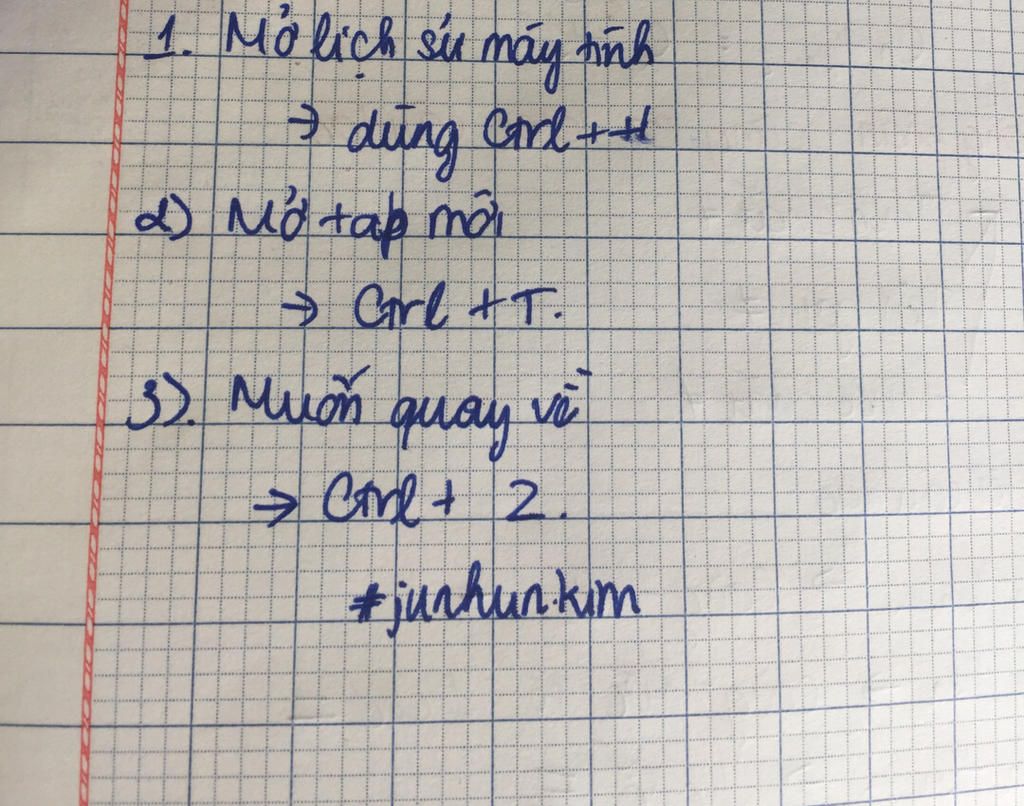 1. Mở lịch sử máy tính
→ dùng Ctrl + H
2) Mở tap mới
→ Ctrl + T.
3). Muốn quay về
→ Ctrl + Z.
#junhun.kim